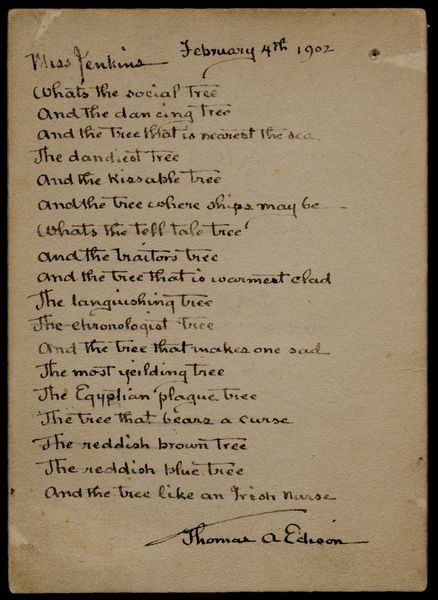 February 4th 1902
Miss Jenkins
Whats the social tree
And the dancing tree
And the tree that is nearest the sea
The dandiest tree
And the kissable tree
And the tree where ships may be
Whats the tell tale tree
And the traitors tree
And the tree that is warmest clad
The languishing tree
The chronologist tree
And the tree that makes one sad
The most yeilding tree
The Egyptian plague tree
The tree that bears a curse
The reddish brown tree
The reddish blue tree
And the tree like an Irish Nurse
Thomas A Edison